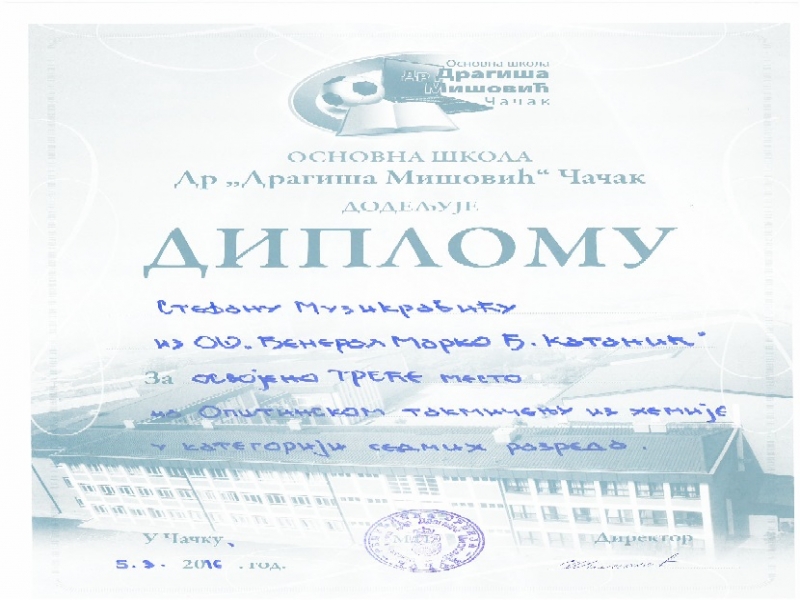 Основна школа
Др Драгиша
Мишовић
Чачак
ОСНОВНА ШКОЛА
Др „Драгиша Мишовић“ Чачак
ДОДЕЉУЈЕ
ДИПЛОМУ
Стефану
из ОШ. Ђенерал Марко Ђ. Катанић"
За освојено ТРЕЋЕ место
на Општинском такмичењу из хемије
у категорији седмих разреда.
У Чачку,
Директор
5.3. 2016 . год.